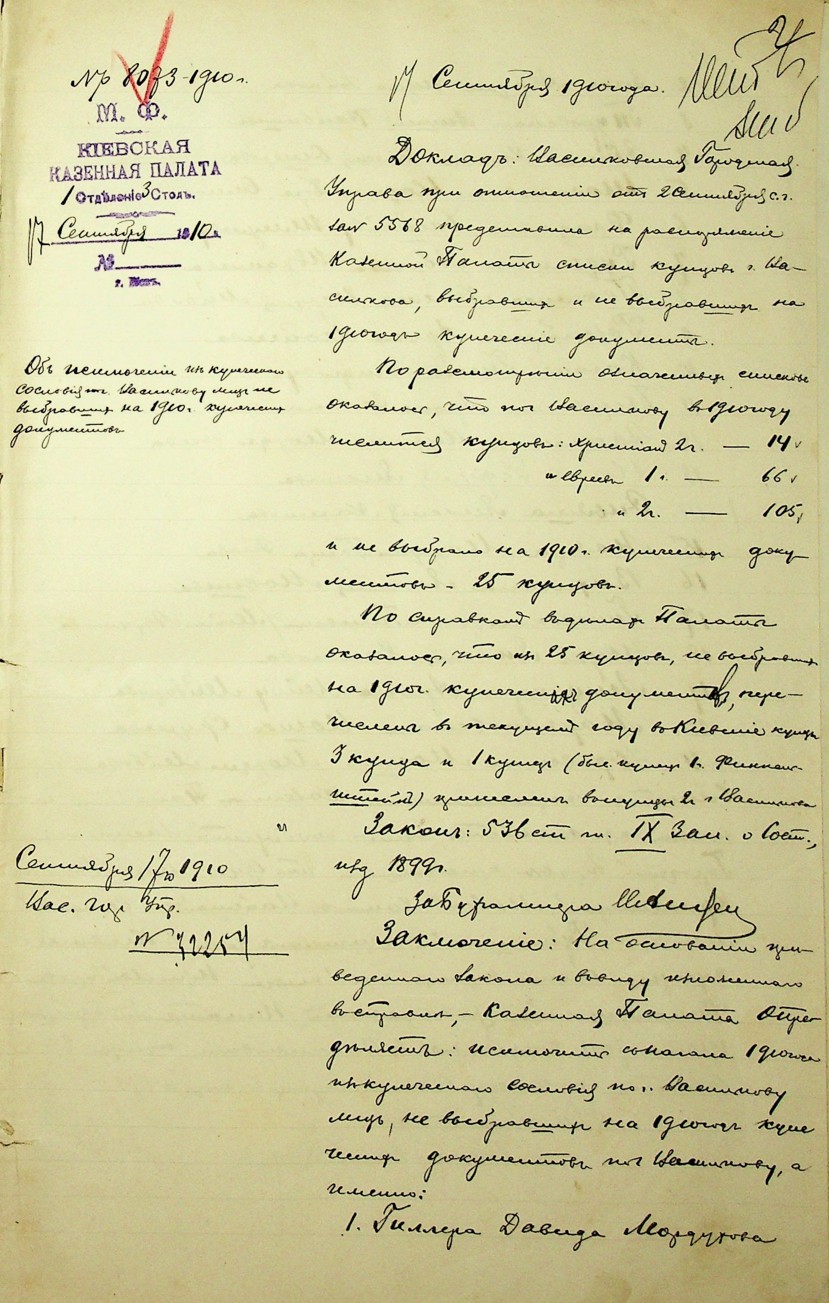 № 8073-1910 г.
М. Ф.
КІЕВСКАЯ
КАЗЕННАЯ ПАЛАТА
1 Отдѣленіе 3 Столъ.
17 Сентября 1910 г.
№
г. Кіевъ.
Объ исключеніи изъ купеческаго
сословія по г. Василькову лицъ не
выбравшихъ на 1910 г. купеческихъ
документовъ
Сентября 17 1910
Вас. Гор. Упр.
№ 32254
17 Сентября 1910 года.
Докладъ: Васильковская Городская
Управа при отношеніи отъ 2 Сентября с. г.
за № 5568 представила на разсмотреніе
Казенной Палаты списки купцовъ г. Ва-
силькова, выбравшихъ и не выбравшихъ на
1910 годъ купеческіе документы.
По разсмотреніи означенныхъ списковъ
оказалось, что по г. Василькову въ 1910 году
числится купцовъ: христіанъ 2 г. — 14
" евреевъ 1 г. — 66
" 2 г. — 105
и не выбрало на 1910 г. купеческихъ доку-
ментовъ - 25 купцовъ.
По справкамъ въ дѣлахъ Палаты
оказалось, что изъ 25 купцовъ, не выбравшихъ
на 1910 г. купеческихъ документовъ, пере-
численъ въ текущемъ году въ Кіевскіе купцы
3 купца и 1 купецъ (был. купецъ 1 г. Финкель-
штейнъ) причисленъ въ купцы 2 г. г. Василькова
Законъ: 536 ст. т. IX Зак. о Сост.,
изд 1899 г.
За Бухгалтера
Заключеніе: На основаніи при-
веденнаго закона и въ виду изложеннаго
въ справкѣ, - Казенная Палата Опре-
дѣляетъ: исключить съ начала 1910 года
изъ купеческаго сословія по г. Василькову
лицъ, не выбравшихъ на 1910 годъ купе
ческихъ документовъ по г. Василькову, а
именно:
1. Гиллера Давида Мордухова